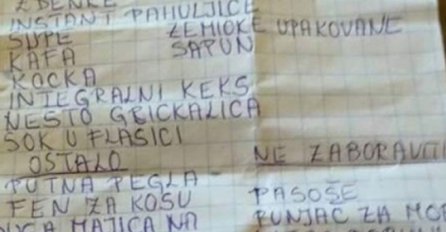 INSTANT PAHULJICE
SUPE ZEMIČKE UPAKOVANE
KAFA SAPUN
KOCKA
INTEGRALNI KEKS
NEŠTO GRICKALICA
SOK U FLAŠICI
OSTALO NE ZABORAVITI
PUTNA PEGLA
FEN ZA KOSU PASOŠE
MAJICA NA PUNJAČ ZA